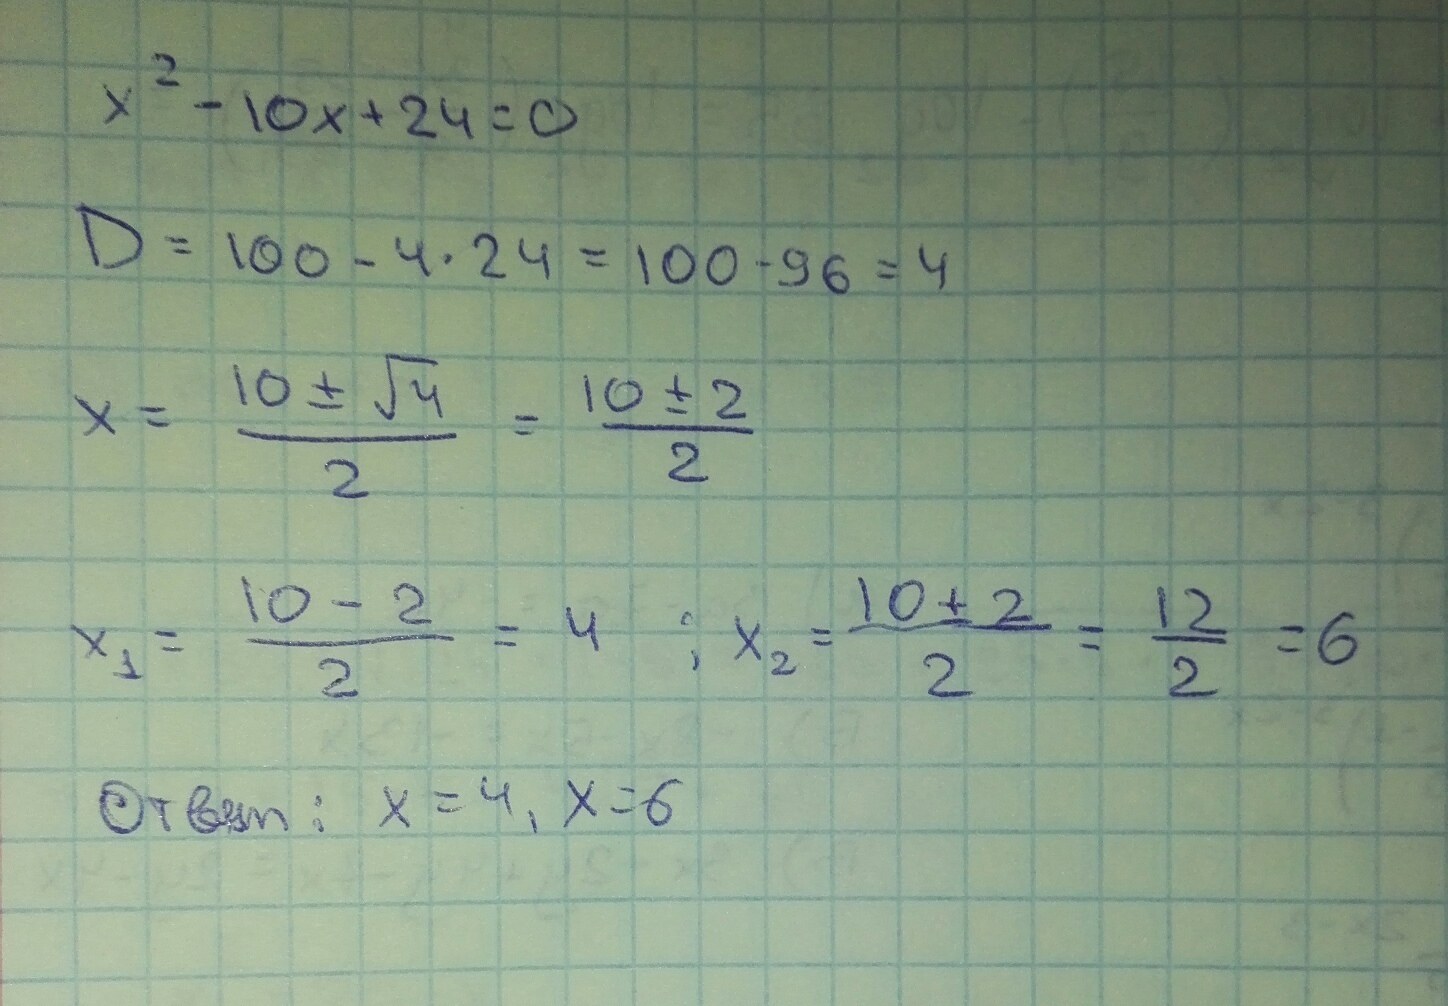 x² - 10x + 24 = 0
D = 100 - 4 · 24 = 100 - 96 = 4
x = (10 ± √4)/2 = (10 ± 2)/2
x₁ = (10 - 2)/2 = 4 ; x₂ = (10 ± 2)/2 = 12/2 = 6
Ответ: x = 4, x = 6